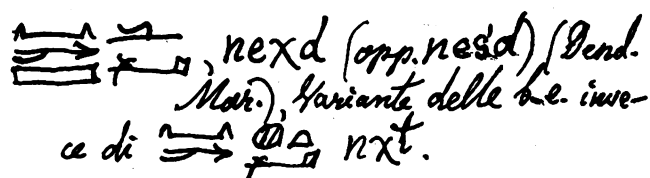 , nexd (opp. nesd) (Dend.
Mar.), Variante delle b.e. inve-
ce di nχt.